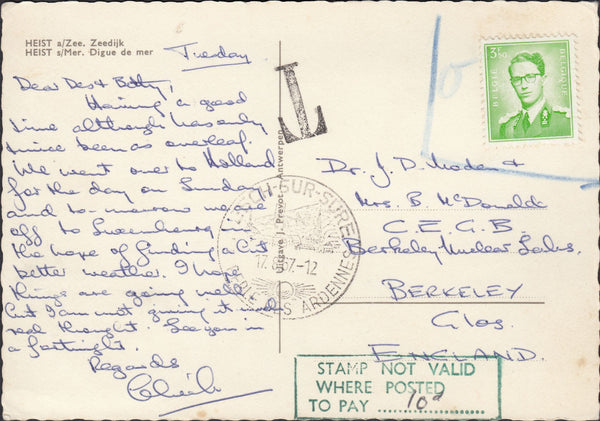 HEIST a/Zee. Zeedijk
HEIST s/Mer. Digue de mer
Tuesday
Dear Des & Betty,
Having a good
time although has only
twice been as overleaf.
We went over to Holland
for the day on Sunday
and to-morrow we're
off to Luxembourg in
the hope of finding a bit
better weather. I hope
things are going well
but I am not giving it much
real thought. See you in
a fortnight.
Regards
Uitgave J. Prevot - Antwerpen
T
3F50
BELGIE BELGIQUE
ESCH-SUR-SURE
17. 67-12
PERLE DES ARDENNES
Dr. J. D. &
Mrs. B. McDonald
C.E.G.B.
Berkeley Nuclear Labs.
BERKELEY
Glos.
ENGLAND.
STAMP NOT VALID
WHERE POSTED
TO PAY 10d